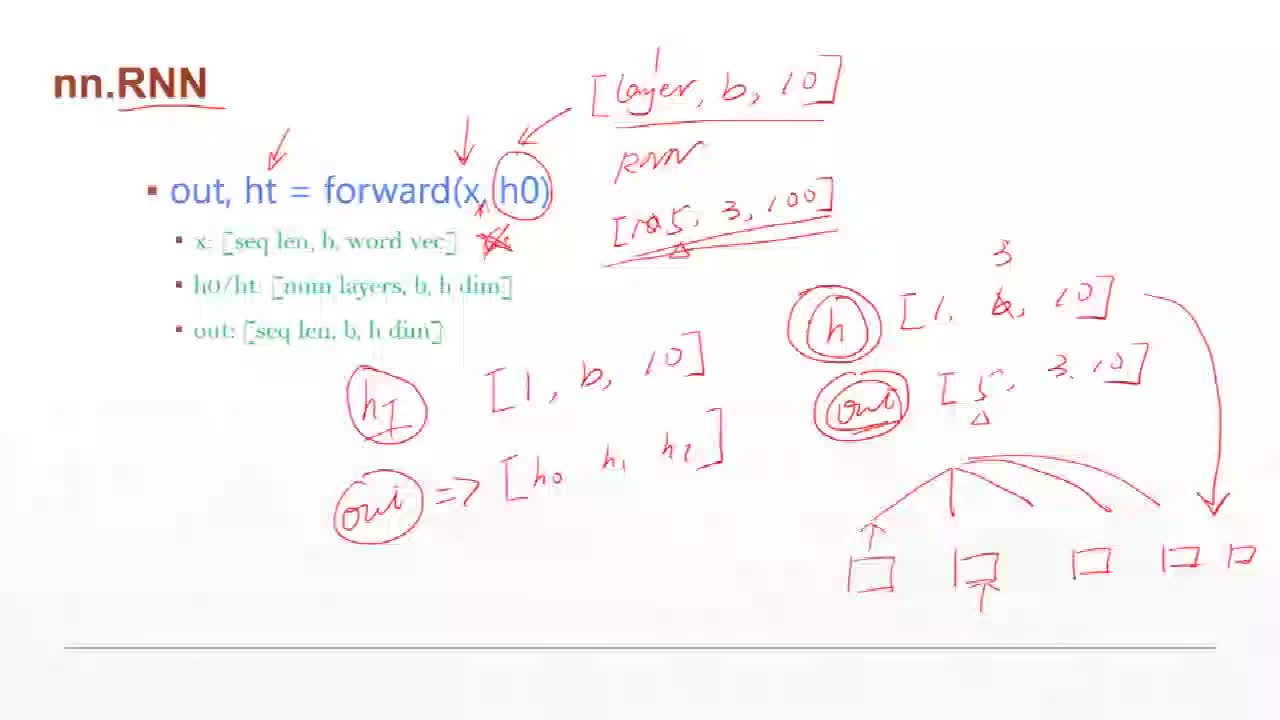 nn.RNN
[layer, b, 10]
1
RNN
▪ out, ht = forward(x, h0)
▪ x: [seq len, b, word vec]
[5, 3, 100]
▪ h0/ht: [num layers, b, h dim]
▪ out: [seq len, b, h dim]
3
h [1, b, 10]
out [5, 3, 10]
hT [1, b, 10]
out => [h0 h1 h2]